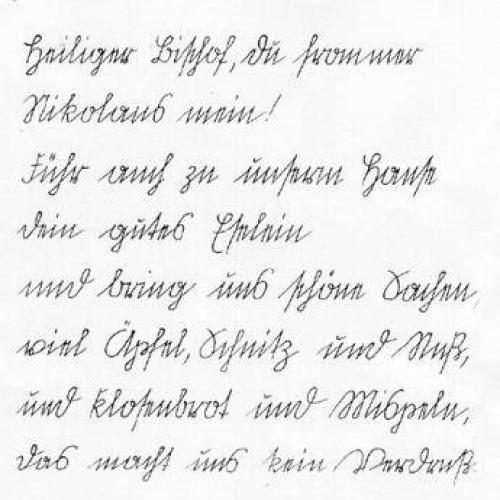 Heiliger Bischof, du frommer
Nikolaus mein!
Führ auch zu unserm Hause
dein gutes Eselein
und bring uns schöne Sachen,
viel Äpfel, Schnitz und Nuß,
und Klosenbrot und Mispeln,
das macht uns kein Verdruß.